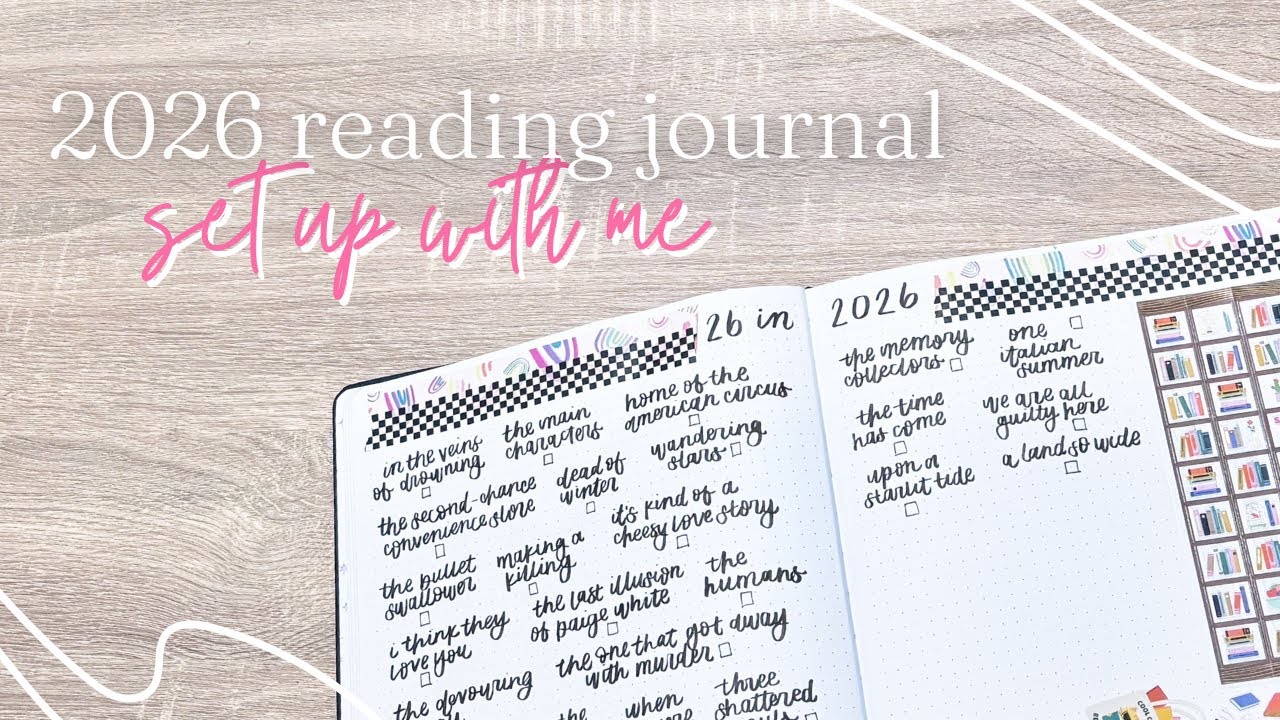 2026 reading journal
set up with me
26 in
2026
in the veins
of drowning
the main
characters
home of the
american circus
the second-chance
convenience store
dead of
winter
wandering
stars
the bullet
swallower
making a
killing
it's kind of a
cheesy love story
i think they
love you
the last illusion
of paige white
the
humans
the devouring
the one that got away
with murder
the
when
three
shattered
the memory
collectors
one
italian
summer
the time
has come
we are all
guilty here
upon a
starlit tide
a land so wide